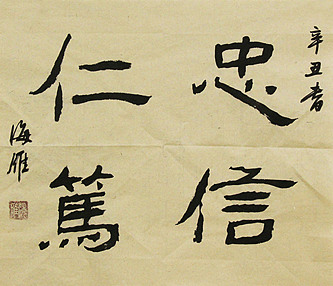 辛丑
忠信
仁篤
海雁